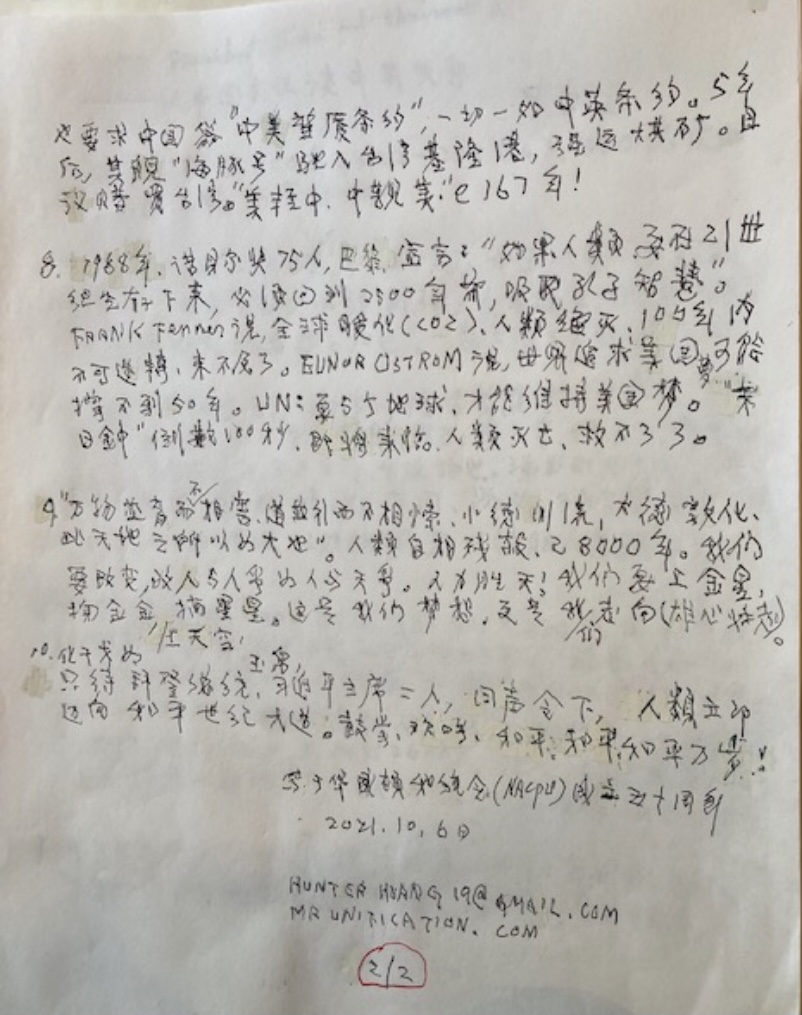 也要求中国簽"中美望厦条约",一切一如中英条约。5年
后,其舰"海豚号"驶入台湾基隆港,强运煤矿。且
议购買台湾。"美轻中.中親美."已167年!
8. 1988年.诺貝尔奖75人,巴黎宣言:"如果人類要在21世
纪生存下来,必须回到2500年前,吸取孔子智慧"。
FRANK Fenner说,全球暖化(CO2).人類绝灭.100年内
不可逆轉.来不及了。ELINOR OSTROM说,世界追求美国夢可能
撑不到50年。UN:要5个地球.才能维持美国梦。"末
日鐘"倒數100秒.即將来临.人類灭亡.救不了了。
9."万物並育而不相害.道並行而不相悖.小德川流,大德敦化.
此天地之所以为大也"。人類自相残殺.已8000年。我们
要改变,改人与人争为人与天争。人力胜天!我们要上金星,
掏金金摘星星。这是我们梦想.更是我们志向(雄心壮志)。
10.化干戈为玉帛,
只待拜登總統.习近平主席二人,同声令下, 人類立即
迈向和平世纪大道。鼓掌.欢呼.和平.和平.和平万岁!
写于华盛頓和統会(NACPU)成立五十周年
2021.10.6日
HUNTER HUANG 19@GMAIL.COM
MR UNIFICATION.COM
2/2